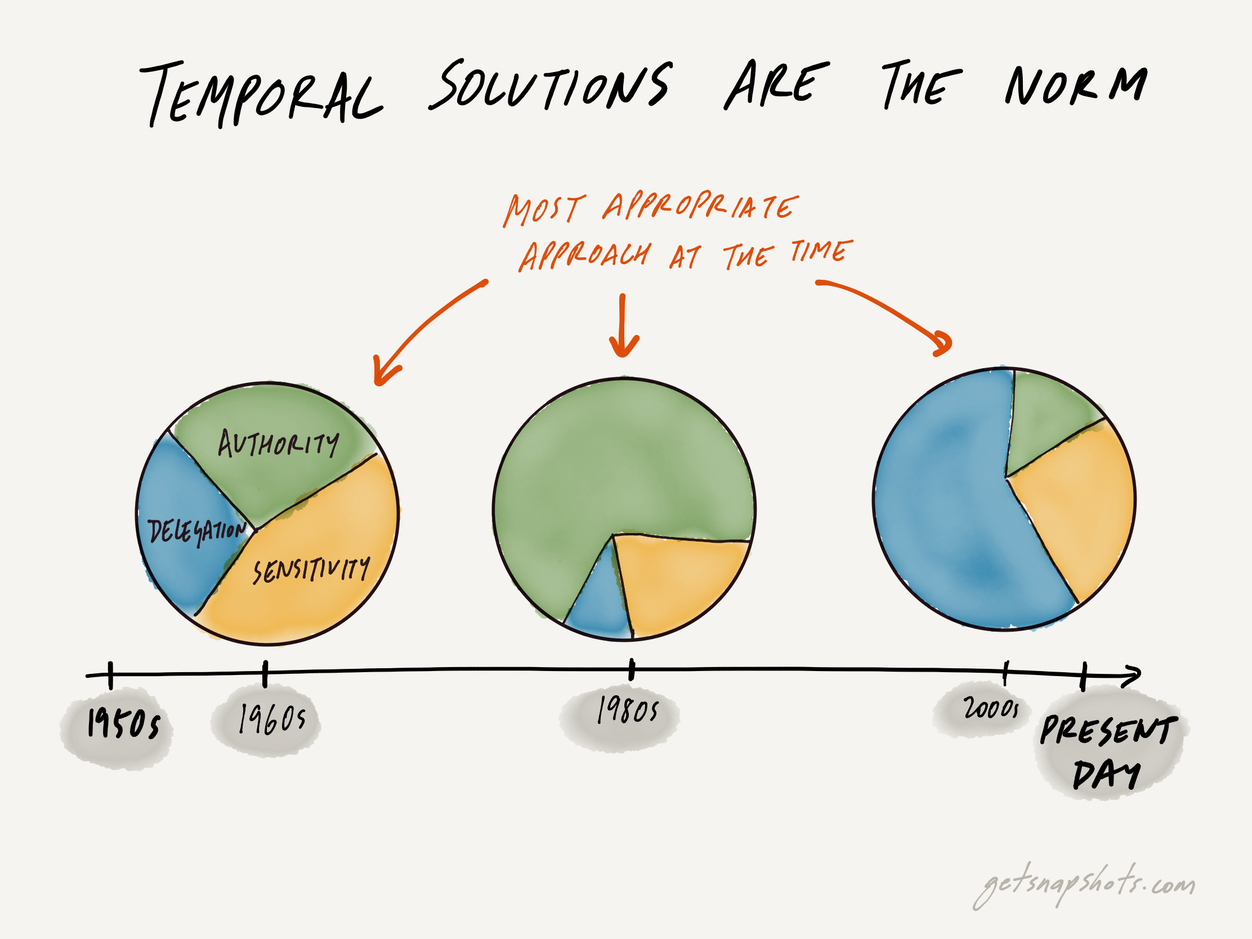 TEMPORAL SOLUTIONS ARE THE NORM
MOST APPROPRIATE
APPROACH AT THE TIME
AUTHORITY
DELEGATION
SENSITIVITY
1950s
1960s
1980s
2000s
PRESENT
DAY
getsnapshots.com